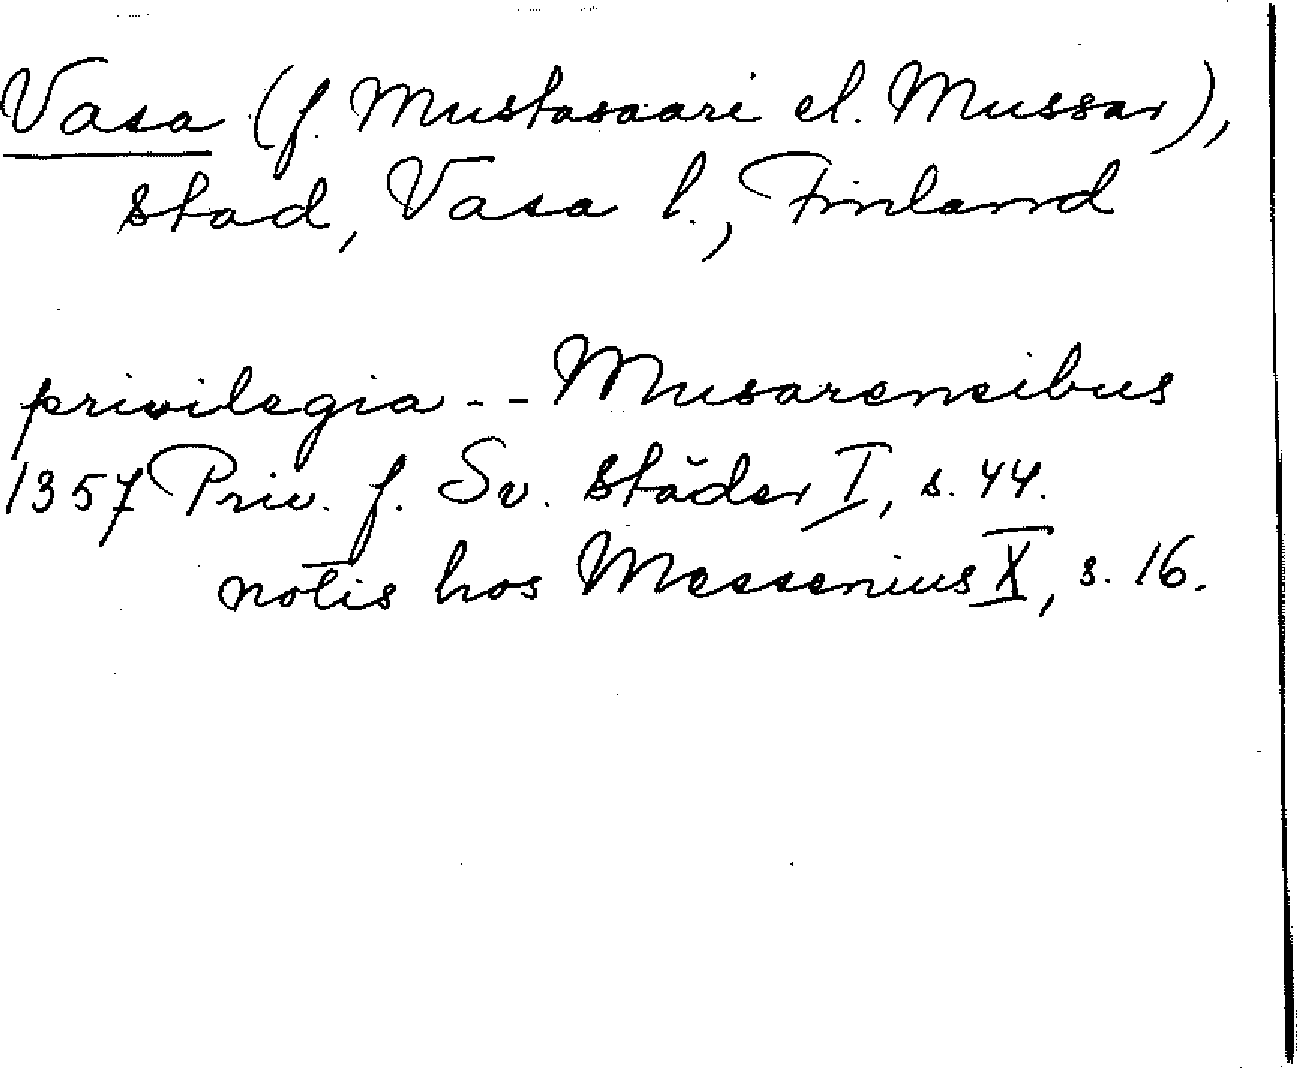 Vasa (f. Mustasaari el. Mussar),
stad, Vasa l., Finland
privilegia -- Musarensibus
1357 Priv. f. Sv. städer I, s. 44.
notis hos Messenius X, s. 16.